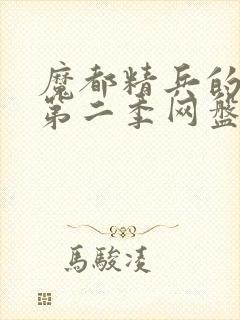 魔都精兵的
第二季网盘
馬駿凌